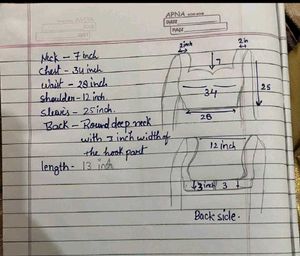 APNA
DATE
PAGE
Neck - 7 inch
Chest - 34 inch
waist - 28 inch
shoulder - 12 inch.
Sleevs - 25 inch.
Back - Round deep neck
with 3 inch width of
the hook part
length - 13 inch
2 inch
2 in
7
34
25
28
12 inch
3 inch
3
Back side.